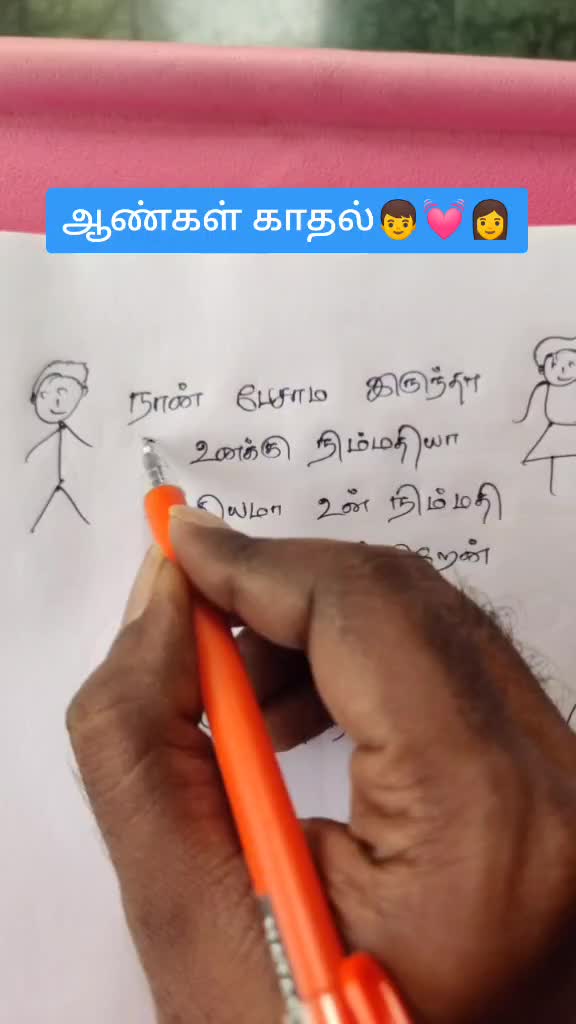 ஆண்கள் காதல்👦💓👩
நான் பேசாம இருந்தா
உனக்கு நிம்மதியா
உன் நிம்மதி